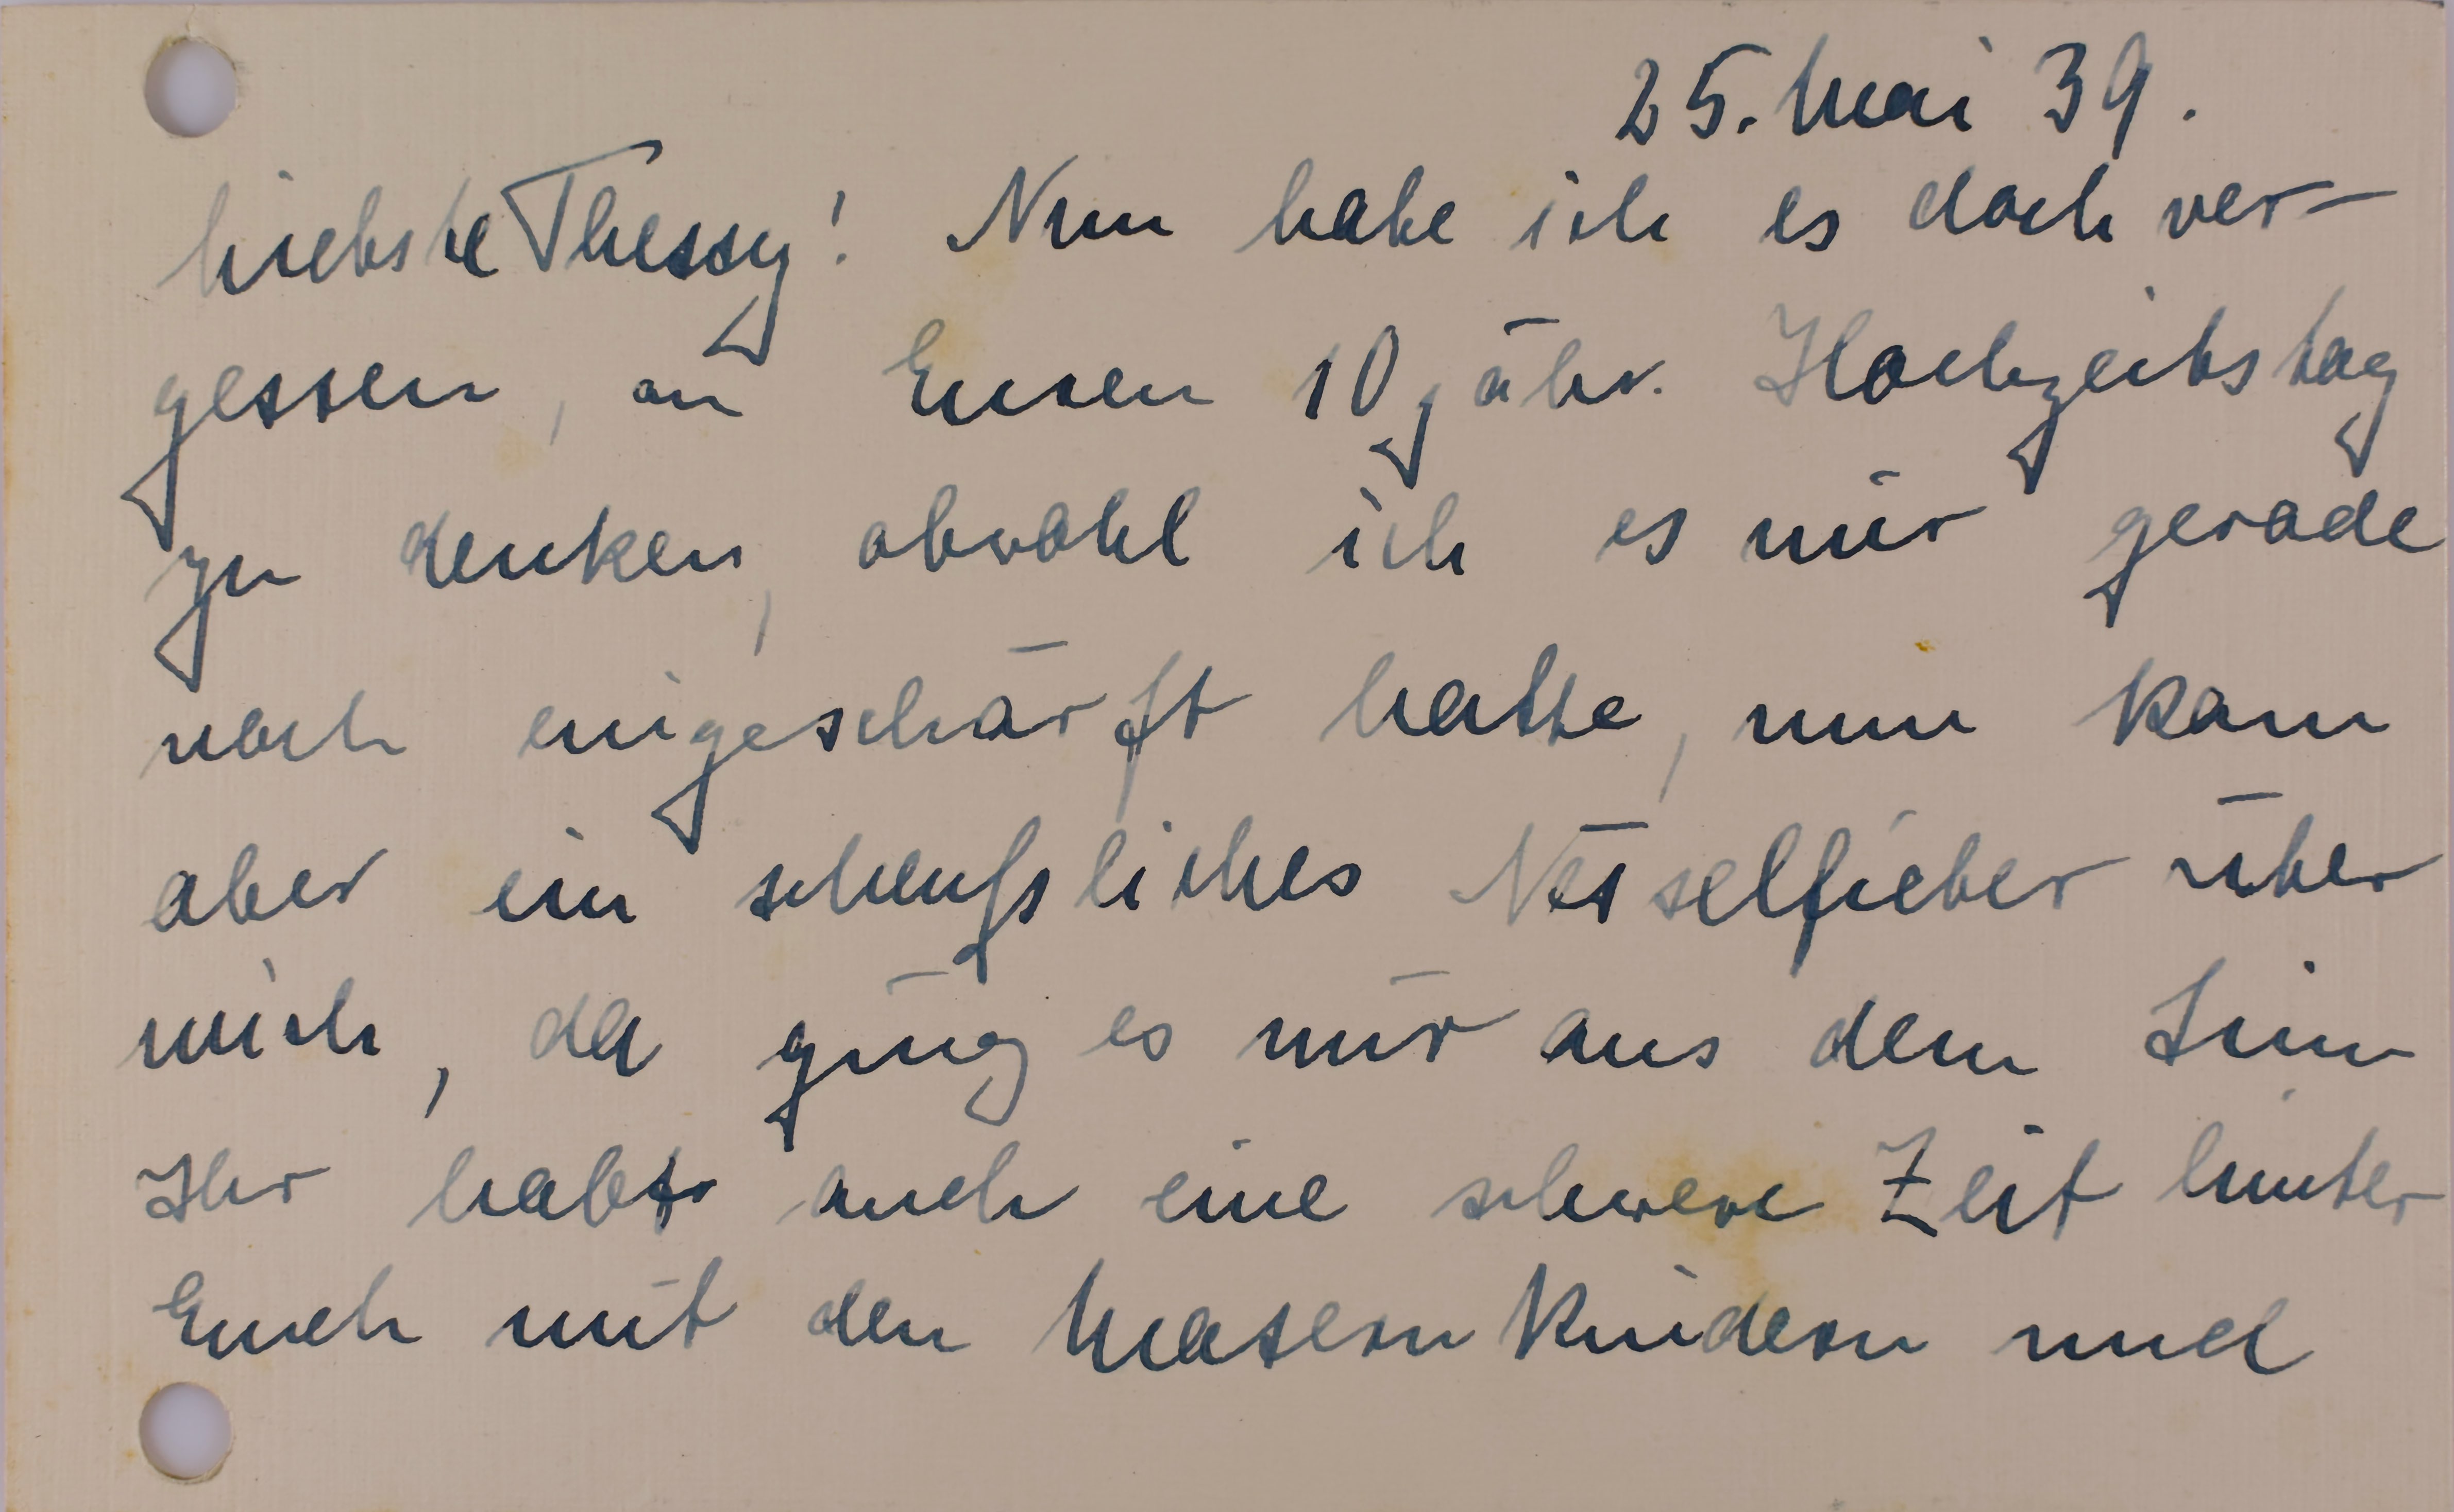 25. Mai 39.
Liebste Thessy! Nun habe ich es doch ver-
gessen, an Euren 10jähr. Hochzeitstag
zu denken, obwohl ich es mir gerade
noch eingeschärft hatte, nun kam
aber ein scheußliches Nesselfieber über
mich, da ging es mir aus dem Sinn
Ihr habt auch eine schwere Zeit hinter
Euch mit den Masern Kindern und